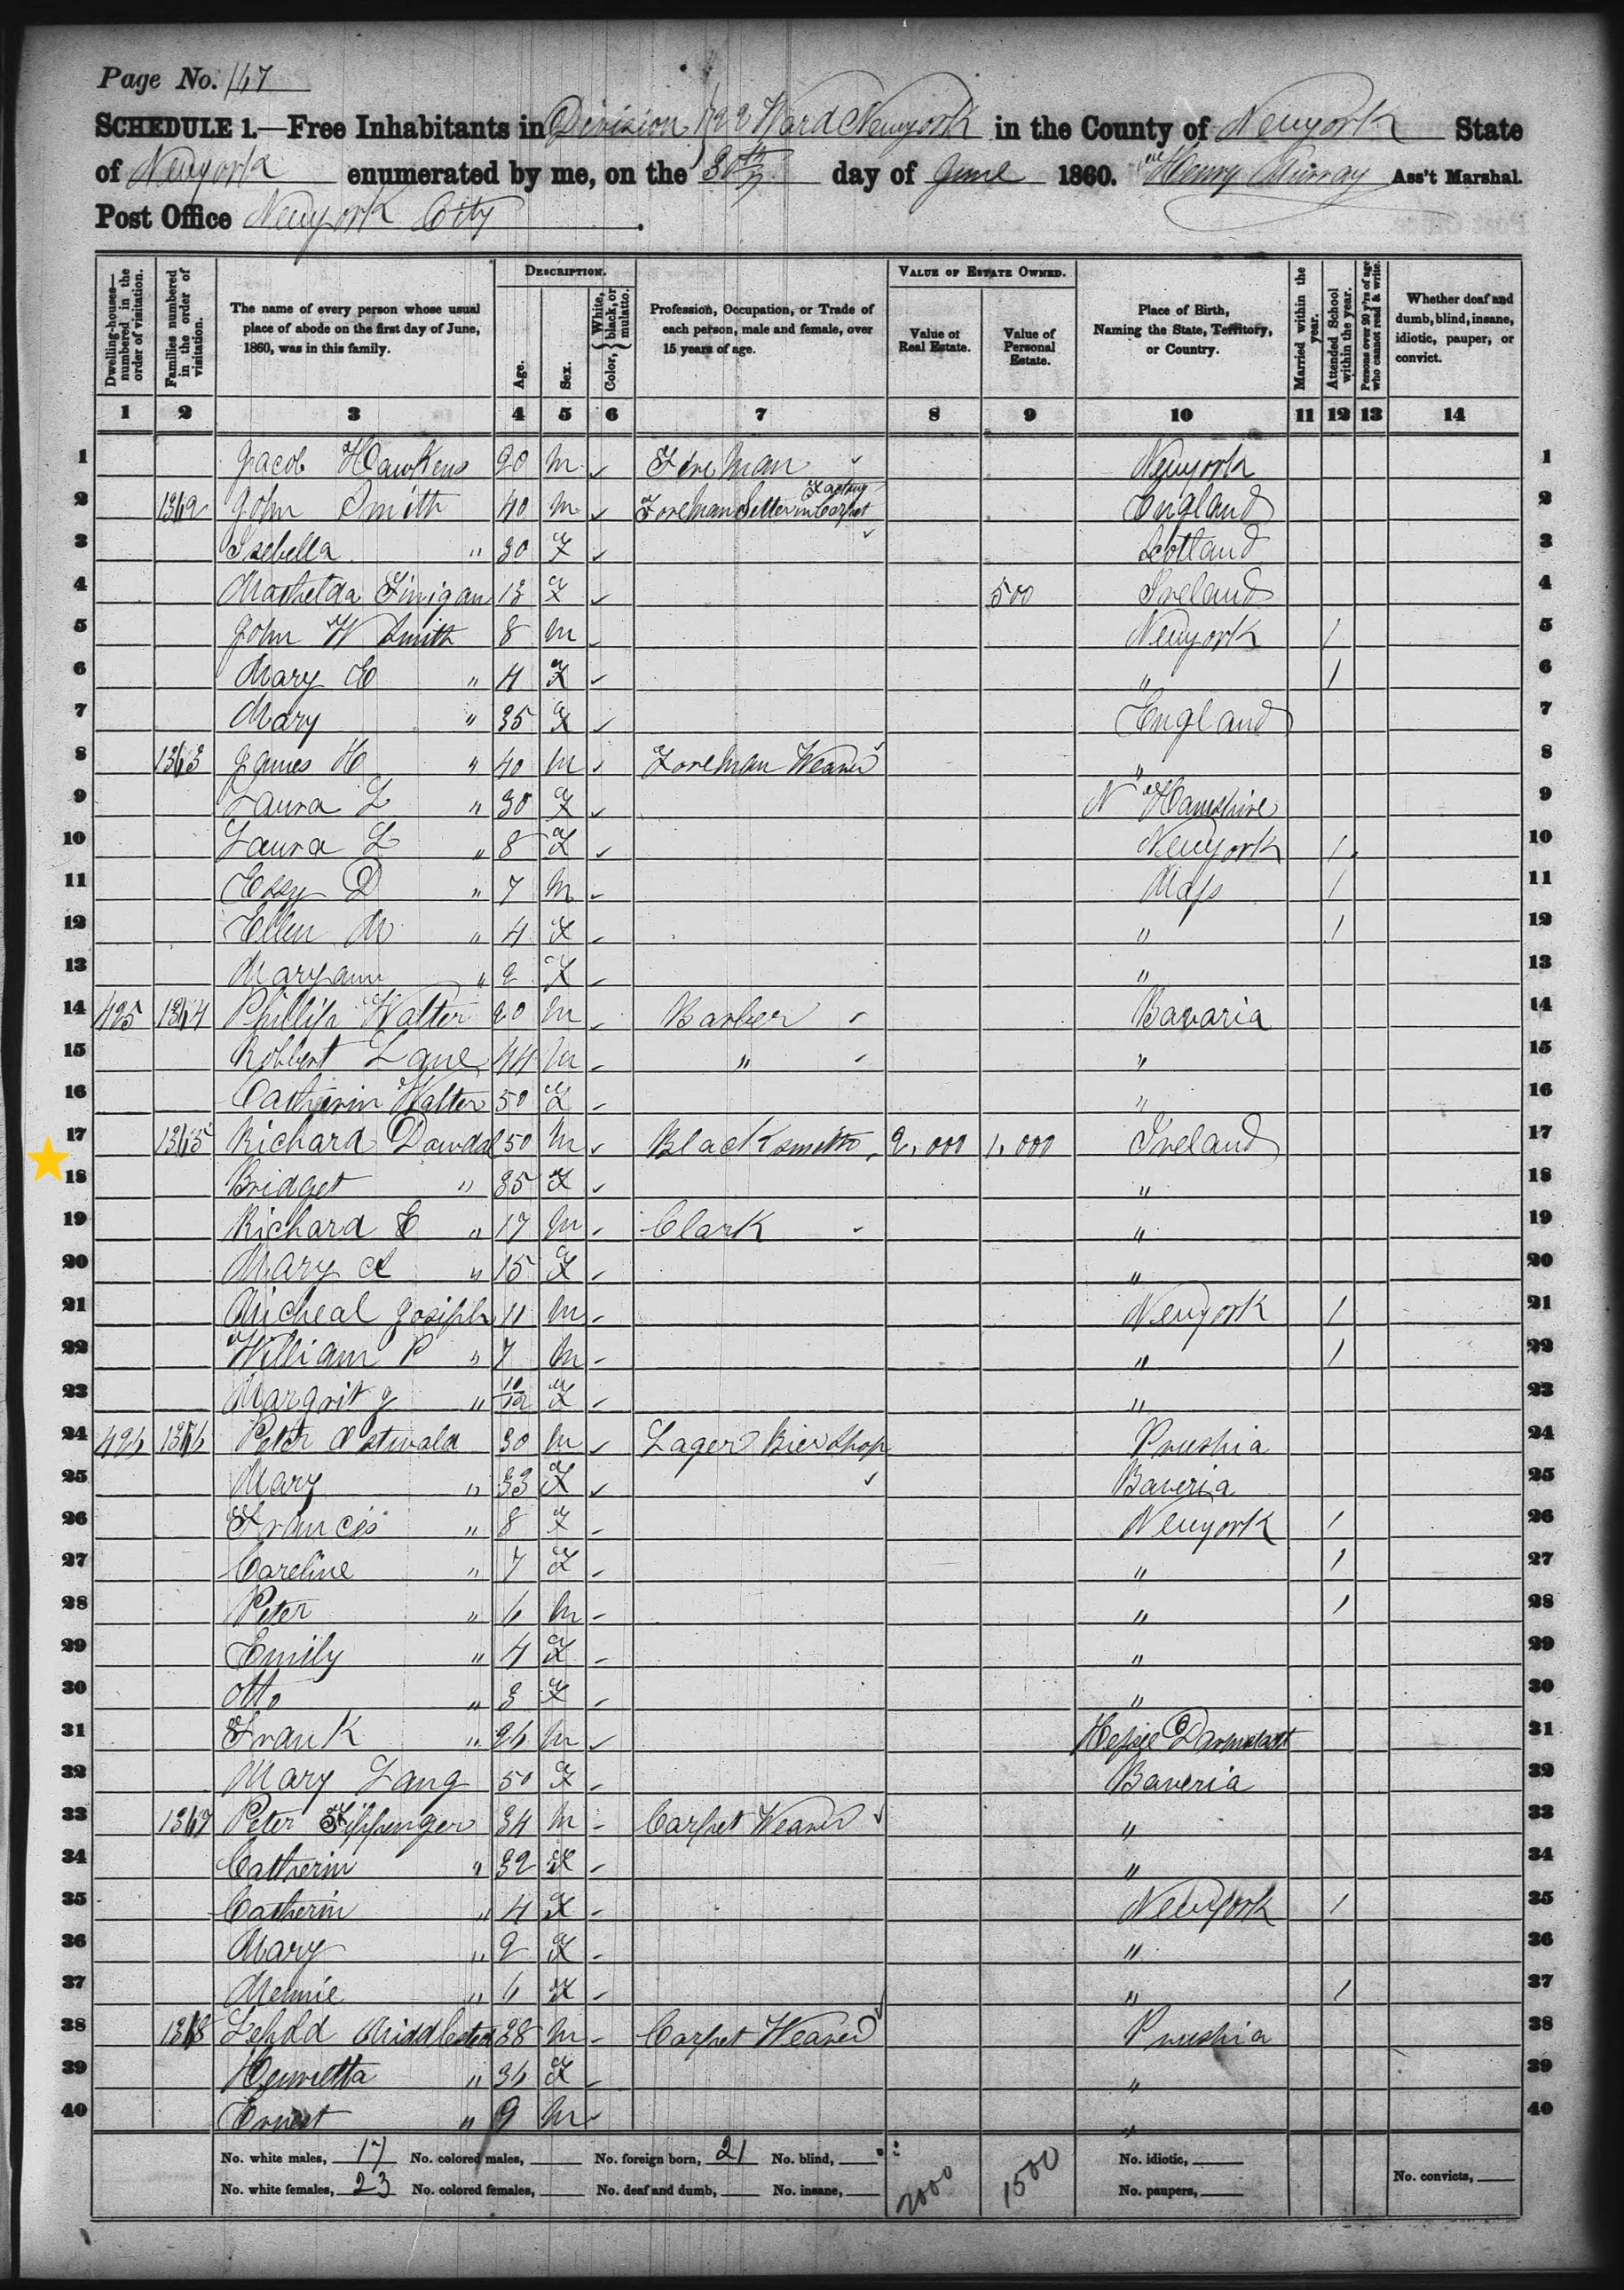 Page No. 147
SCHEDULE 1.—Free Inhabitants in Division 1 22 Ward Newyork in the County of Newyork State
of Newyork enumerated by me, on the 30th day of June 1860. Henry Murray Ass't Marshal.
Post Office Newyork City.
Dwelling-houses—numbered in the order of visitation.
Families numbered in the order of visitation.
The name of every person whose usual place of abode on the first day of June, 1860, was in this family.
DESCRIPTION.
Age.
Sex.
Color, { White, black, or mulatto.
Profession, Occupation, or Trade of each person, male and female, over 15 years of age.
VALUE OF ESTATE OWNED.
Value of Real Estate.
Value of Personal Estate.
Place of Birth, Naming the State, Territory, or Country.
Married within the year.
Attended School within the year.
Persons over 20 y'rs of age who cannot read & write.
Whether deaf and dumb, blind, insane, idiotic, pauper, or convict.
1 2 3 4 5 6 7 8 9 10 11 12 13 14
1 Jacob Hawkens 20 m Fireman Newyork 1
2 1362 John Smith 40 m Foreman Setter in Carpet Factory England 2
3 Isebella " 30 F Scotland 3
4 Mathelda Finigan 13 F 500 Ireland 4
5 John W Smith 8 m Newyork / 5
6 Mary E " 4 F " / 6
7 Mary " 35 F England 7
8 1363 James H " 40 m Foreman Weaver " 8
9 Laura L " 30 F N Hamshire 9
10 Laura L " 8 F Newyork / 10
11 D " 7 m Mass / 11
12 Ellen M " 4 F " / 12
13 Maryann " 2 F " 13
14 495 1364 Phillip Walter 20 m Barber Bavaria 14
15 Robbert Lane 44 m " " 15
16 Catherin Walter 50 F " 16
17 1365 Richard Dowdal 50 m Blacksmith 2,000 1,000 Ireland 17
18 Bridget " 35 F " 18
19 Richard E " 17 m Clark " 19
20 Mary A " 15 F " 20
21 Micheal Josiph 11 m Newyork / 21
22 William P " 7 m " / 22
23 Margrit J " 10/12 F " 23
24 496 1366 Peter Ostwald 30 m Lager Bier Shop Prushia 24
25 Mary " 33 F Baveria 25
26 Francis " 8 F Newyork / 26
27 Careline " 7 F " / 27
28 Peter " 6 m " / 28
29 Emily " 4 F " 29
30 Otto " 3 F " 30
31 Frank " 26 m Hesse Darmstatt 31
32 Mary Lang 50 F Baveria 32
33 1367 Peter Fippenger 34 m Carpet Weaver " 33
34 Catherin " 32 F " 34
35 Catherin " 4 F Newyork / 35
36 Mary " 2 F " 36
37 " 6 F " / 37
38 1368 38 m Carpet Weaver Prushia 38
39 Henrietta " 36 F " 39
40 Ernest " 9 m " 40
No. white males, 17 No. colored males, No. foreign born, 21 No. blind, 2000 1500 No. idiotic,
No. white females, 23 No. colored females, No. deaf and dumb, No. insane, No. paupers, No. convicts,